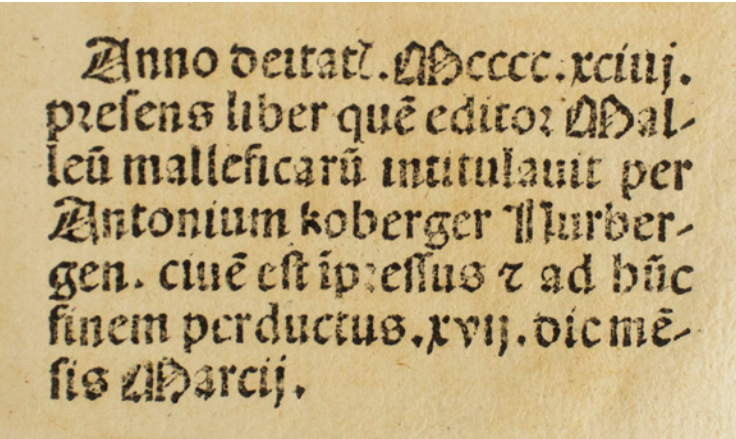 Anno deitatꝭ. Mcccc.xciiij.
preſens liber quē editor Mal⸗
leū malleficarū intitulauit per
Antonium koberger Nurber⸗
gen. ciuē eſt īpreſſus ⁊ ad hūc
finem perductus.xvij.die mē⸗
ſis Marcij.